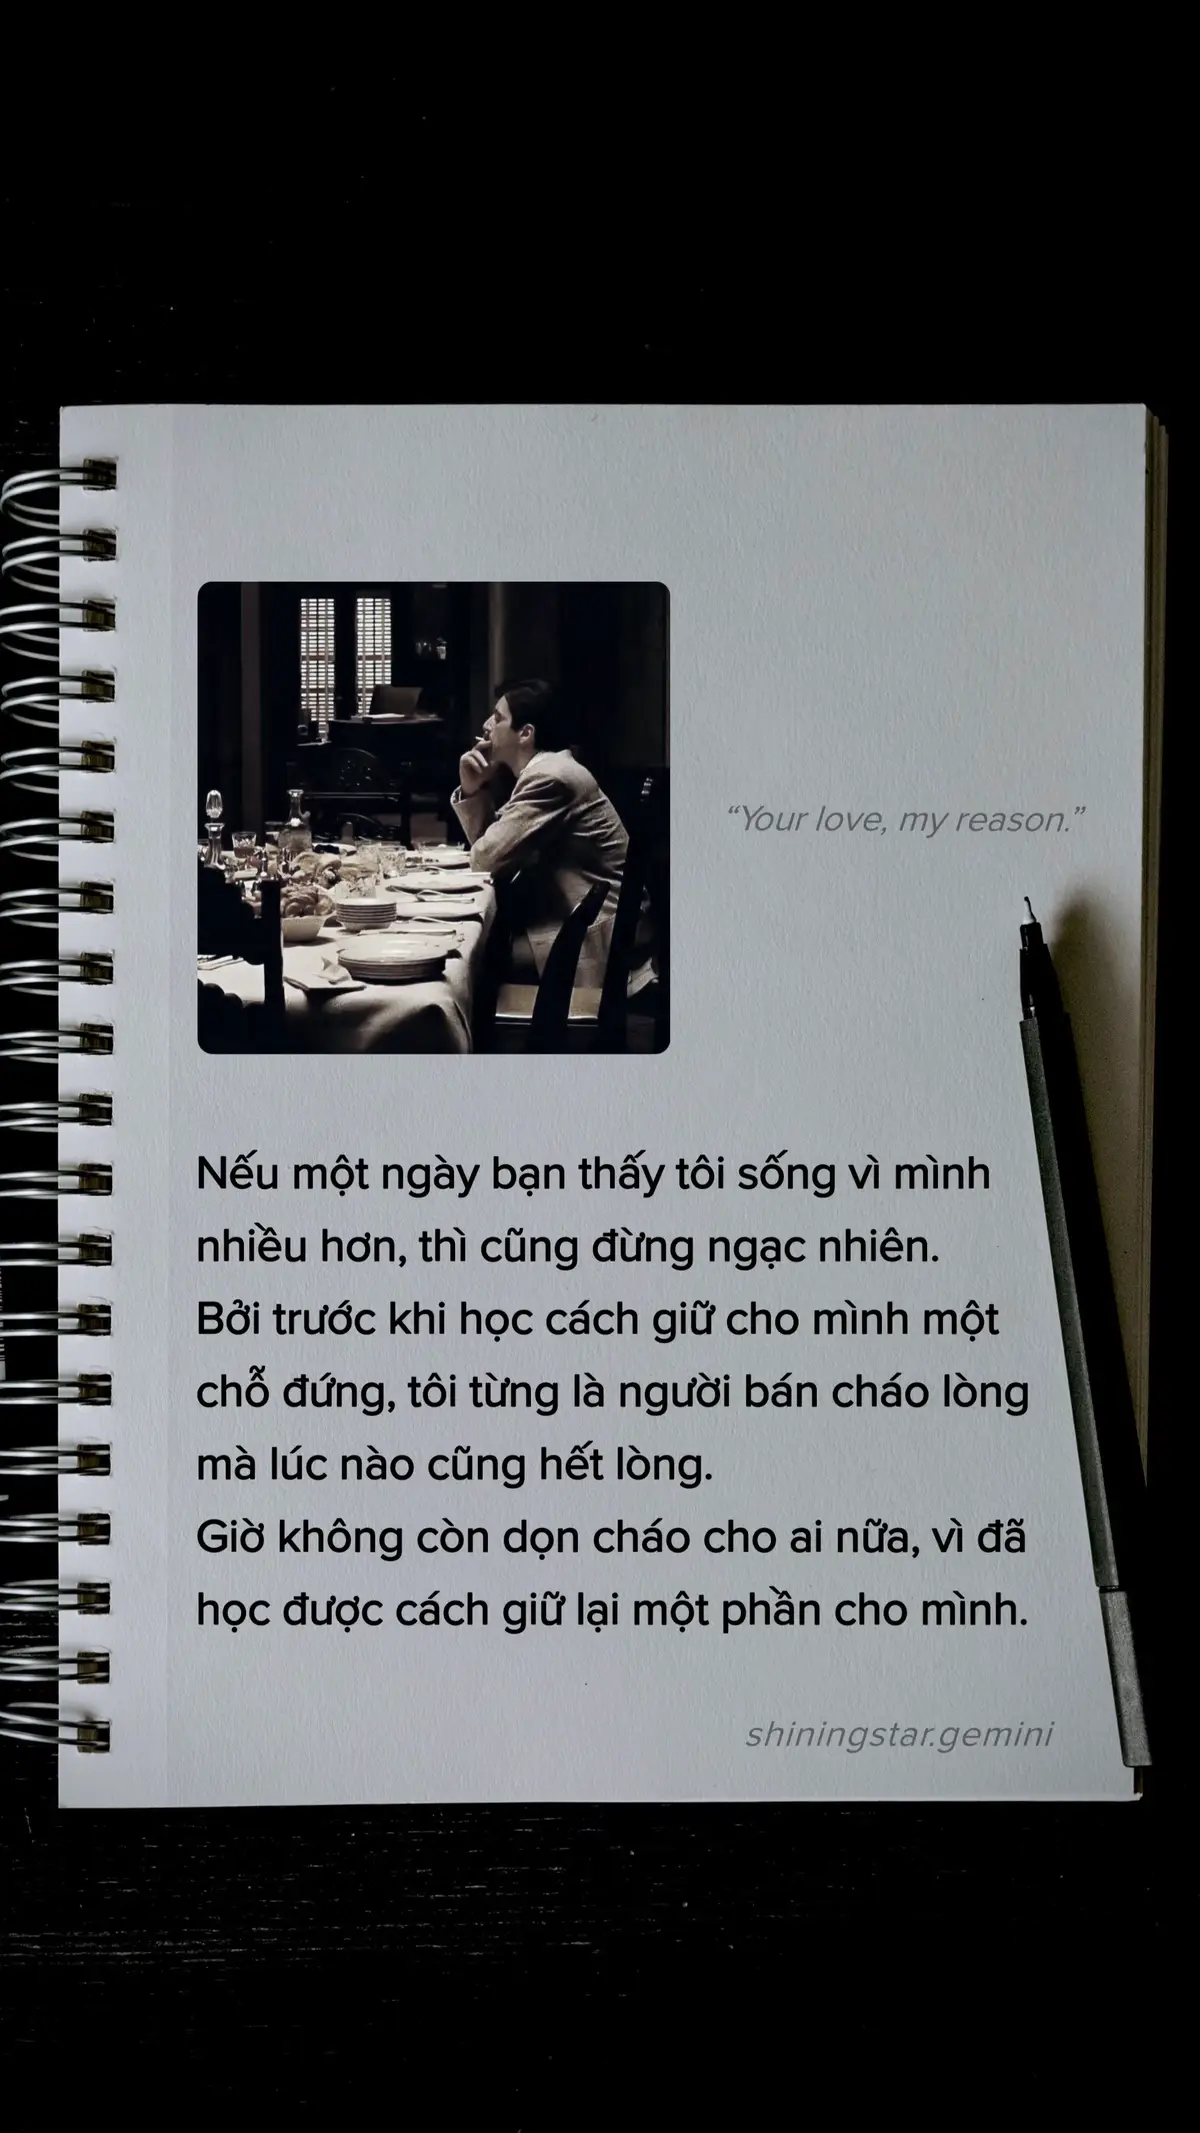 “Your love, my reason.”
Nếu một ngày bạn thấy tôi sống vì mình
nhiều hơn, thì cũng đừng ngạc nhiên.
Bởi trước khi học cách giữ cho mình một
chỗ đứng, tôi từng là người bán cháo lòng
mà lúc nào cũng hết lòng.
Giờ không còn dọn cháo cho ai nữa, vì đã
học được cách giữ lại một phần cho mình.
shiningstar.gemini